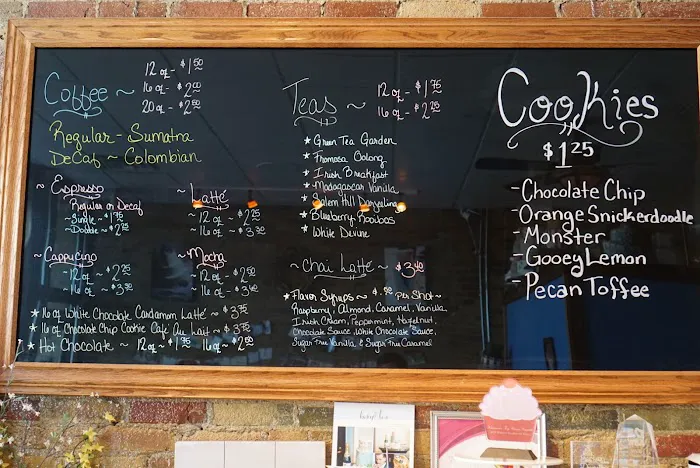 Coffee ~
12 oz- $1.50
16 oz- $2.00
20 oz- $2.50
Regular - Sumatra
DeCaf ~ Colombian
~ Espresso
Regular or Decaf
~ Single ~ $1.75
~ Double ~ $2.75
~ Latté
~ 12 oz ~ $2.75
~ 16 oz ~ $3.50
~ Cappucino
~ 12 oz ~ $2.75
~ 16 oz ~ $3.50
~ Mocha
~ 12 oz ~ $2.50
~ 16 oz ~ $3.50
* 16 oz White Chocolate Cardamom Latté ~ $3.75
* 16 oz Chocolate Chip Cookie Café Au Lait ~ $3.75
* Hot Chocolate ~ 12 oz ~ $1.75 16 oz ~ $2.50
Teas ~
12 oz - $1.75
16 oz - $2.25
* Green Tea Garden
* Fhomosa Oolong
* Irish Breakfast
* Madagascar Vanilla
* Salem Hill Darjeeling
* Blueberry Rooibos
* White Devine
~ Chai Latté ~ $3.40
* Flavor Syrups ~ Per Shot ~
Raspberry, Almond, Caramel, Vanilla
Irish Cream, Peppermint, Hazelnut,
Chocolate Sauce, White Chocolate Sauce,
Sugar Free Vanilla, & Sugar Free Caramel
Cookies
$1.25
- Chocolate Chip
- Orange Snickerdoodle
- Monster
- Gooey Lemon
- Pecan Toffee